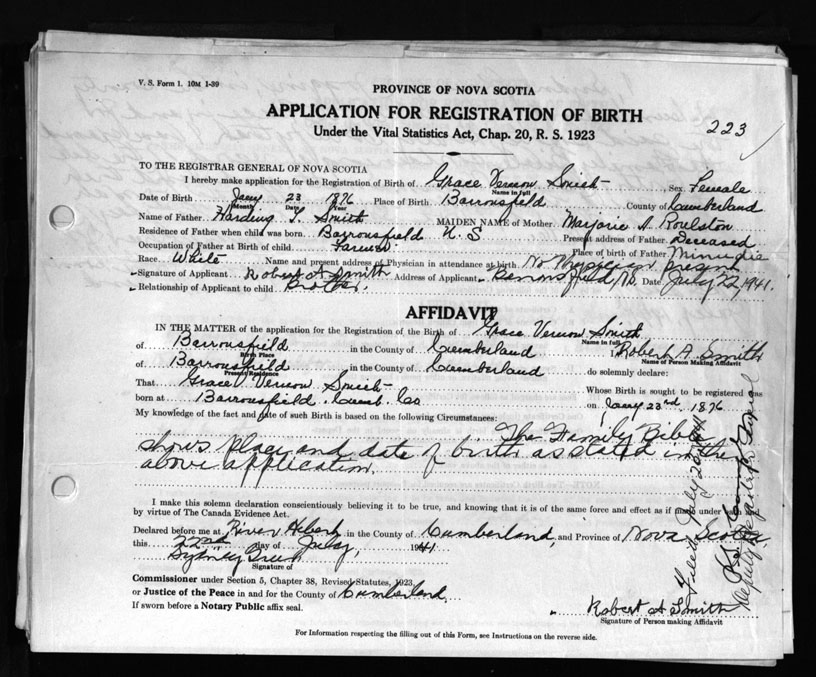 V. S. Form 1. 10M 1-39
PROVINCE OF NOVA SCOTIA
APPLICATION FOR REGISTRATION OF BIRTH
Under the Vital Statistics Act, Chap. 20, R. S. 1923
223
TO THE REGISTRAR GENERAL OF NOVA SCOTIA
I hereby make application for the Registration of Birth of Grace Vernon Smith Sex Female
Name in full
Date of Birth Jany 23 1876 Place of Birth Barronsfield County of Cumberland
Month Date Year
Name of Father Harding T. Smith MAIDEN NAME of Mother Marjorie A. Roulston
Residence of Father when child was born Barronsfield N. S Present address of Father Deceased
Occupation of Father at Birth of child Farmer Place of birth of Father Minudie
Race White Name and present address of Physician in attendance at birth No Physician present
Signature of Applicant Robert A Smith Address of Applicant Barronsfield, N.S. Date July 22, 1941.
Relationship of Applicant to child Brother.
AFFIDAVIT
IN THE MATTER of the application for the Registration of the Birth of Grace Vernon Smith
Name in full
of Barronsfield in the County of Cumberland I Robert A. Smith
Birth Place Name of Person Making Affidavit
of Barronsfield in the County of Cumberland do solemnly declare:
Present Residence
That Grace Vernon Smith Whose Birth is sought to be registered was
born at Barronsfield, Cumb. Co on Jany 23rd 1876
My knowledge of the fact and date of such Birth is based on the following Circumstances:
The Family Bible
shows place and date of birth as stated in the
above application.
I make this solemn declaration conscientiously believing it to be true, and knowing that it is of the same force and effect as if made under oath
by virtue of The Canada Evidence Act.
Declared before me at River Hebert in the County of Cumberland, and Province of Nova Scotia
this 22nd day of July, 1941
Sydney
Signature of
Commissioner under Section 5, Chapter 38, Revised Statutes, 1923,
or Justice of the Peace in and for the County of Cumberland
If sworn before a Notary Public affix seal.
Robert A Smith
Signature of Person making Affidavit
For Information respecting the filling out of this Form, see Instructions on the reverse side.
Deputy Registrar General